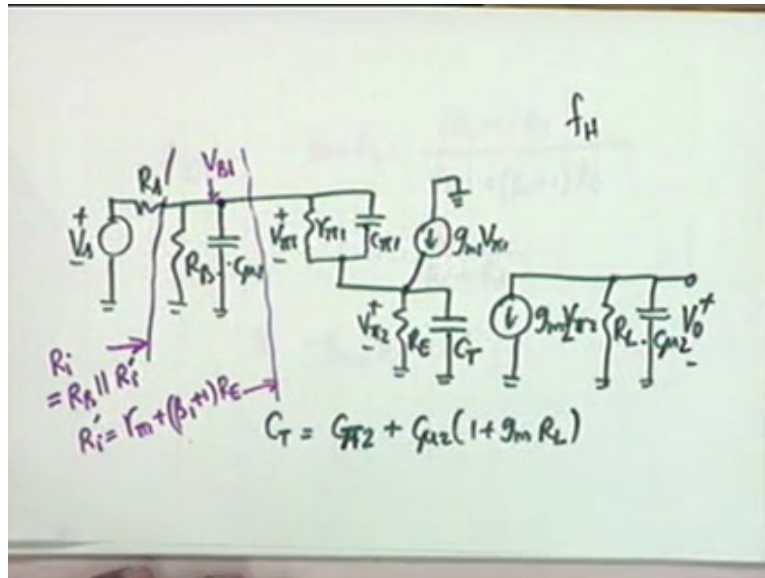 f_H
V_B1
R_s
+
V_s
-
R_B
C_μ1
+
V_π1
-
r_π1
C_π1
g_m1 V_π1
+
V_π2
-
R_E
C_T
g_m2 V_π2
R_L
C_μ2
+
V_0
-
R_i
= R_B || R_i'
R_i' = r_π1 + (β_1+1) R_E
C_T = C_π2 + C_μ2 (1 + g_m R_L)